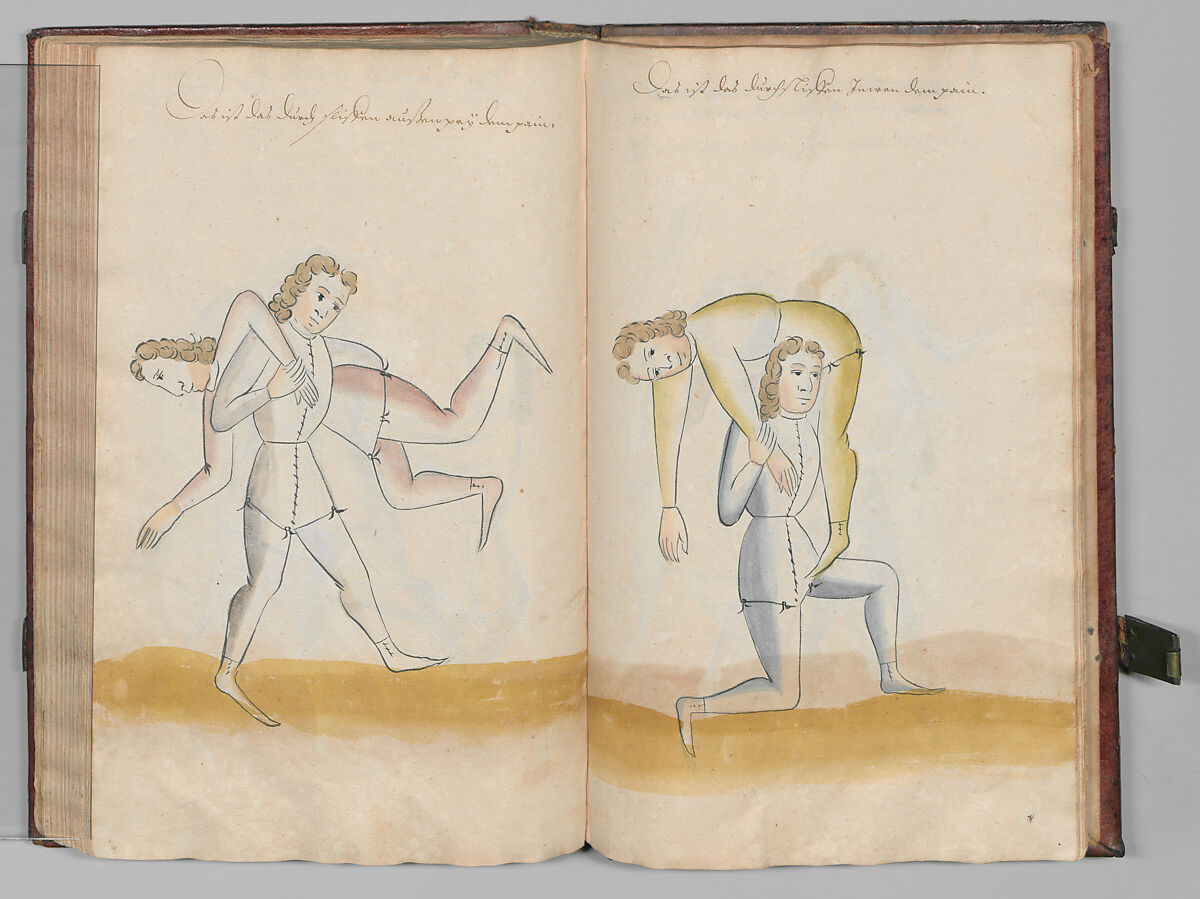 Das ist das durch schliffen außen pey dem pain,
Das ist das durchschliffen Innen dem pain.